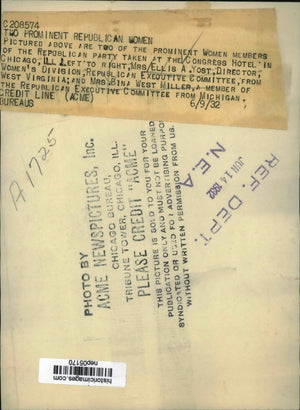 C208574
TWO PROMINENT REPUBLICAN WOMEN
PICTURED ABOVE ARE TWO OF THE PROMINENT WOMEN MEMBERS
OF THE REPUBLICAN PARTY TAKEN AT THE CONGRESS HOTEL IN
CHICAGO, ILL LEFT TO RIGHT, MRS ELLIS A. YOST, DIRECTOR,
WOMEN'S DIVISION, REPUBLICAN EXECUTIVE COMMITTEE, FROM
WEST VIRGINIA; AND MRS BINA WEST MILLER, A MEMBER OF
THE REPUBLICAN EXECUTIVE COMMITTEE FROM MICHIGAN.
CREDIT LINE (ACME) 6/9/32
BUREAUS
A1725
PHOTO BY
ACME NEWSPICTURES, INC.
CHICAGO BUREAU,
TRIBUNE TOWER, CHICAGO, ILL.
PLEASE CREDIT "ACME"
THIS PICTURE IS SOLD TO YOU FOR YOUR
PUBLICATION ONLY AND MUST NOT BE LOANED,
SYNDICATED OR USED FOR ADVERTISING PURPO
WITHOUT WRITTEN PERMISSION FROM US.
REF. DEPT.
JUN 14 1932
N.E.A.
historicimages.com
nep05170